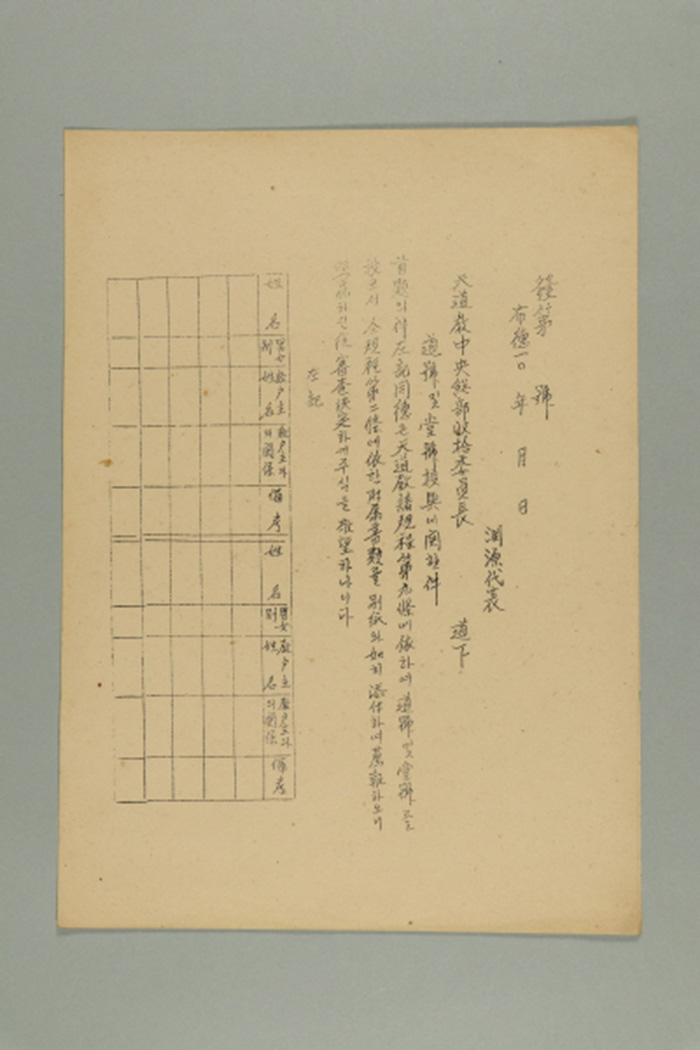 發第　號
布德一〇　年　月　日
淵源代表
天道敎中央総部收拾委員長　道下
道號 및 堂號授與에 関한 件
首題의 件 左記同德은 天道敎諸規程第九條에 依하야 道號 및 堂號를
仝規程第二條에 依한 附属書類를 別紙와 如히 添付하야 薦報하오니
하신 後 審査決定하여주심을 敬望하나이다
左記
姓名
男女別
敎戸主姓名
敎戸主와의 関係
備考
姓名
男女別
敎戸主姓名
敎戸主와의 関係
備考